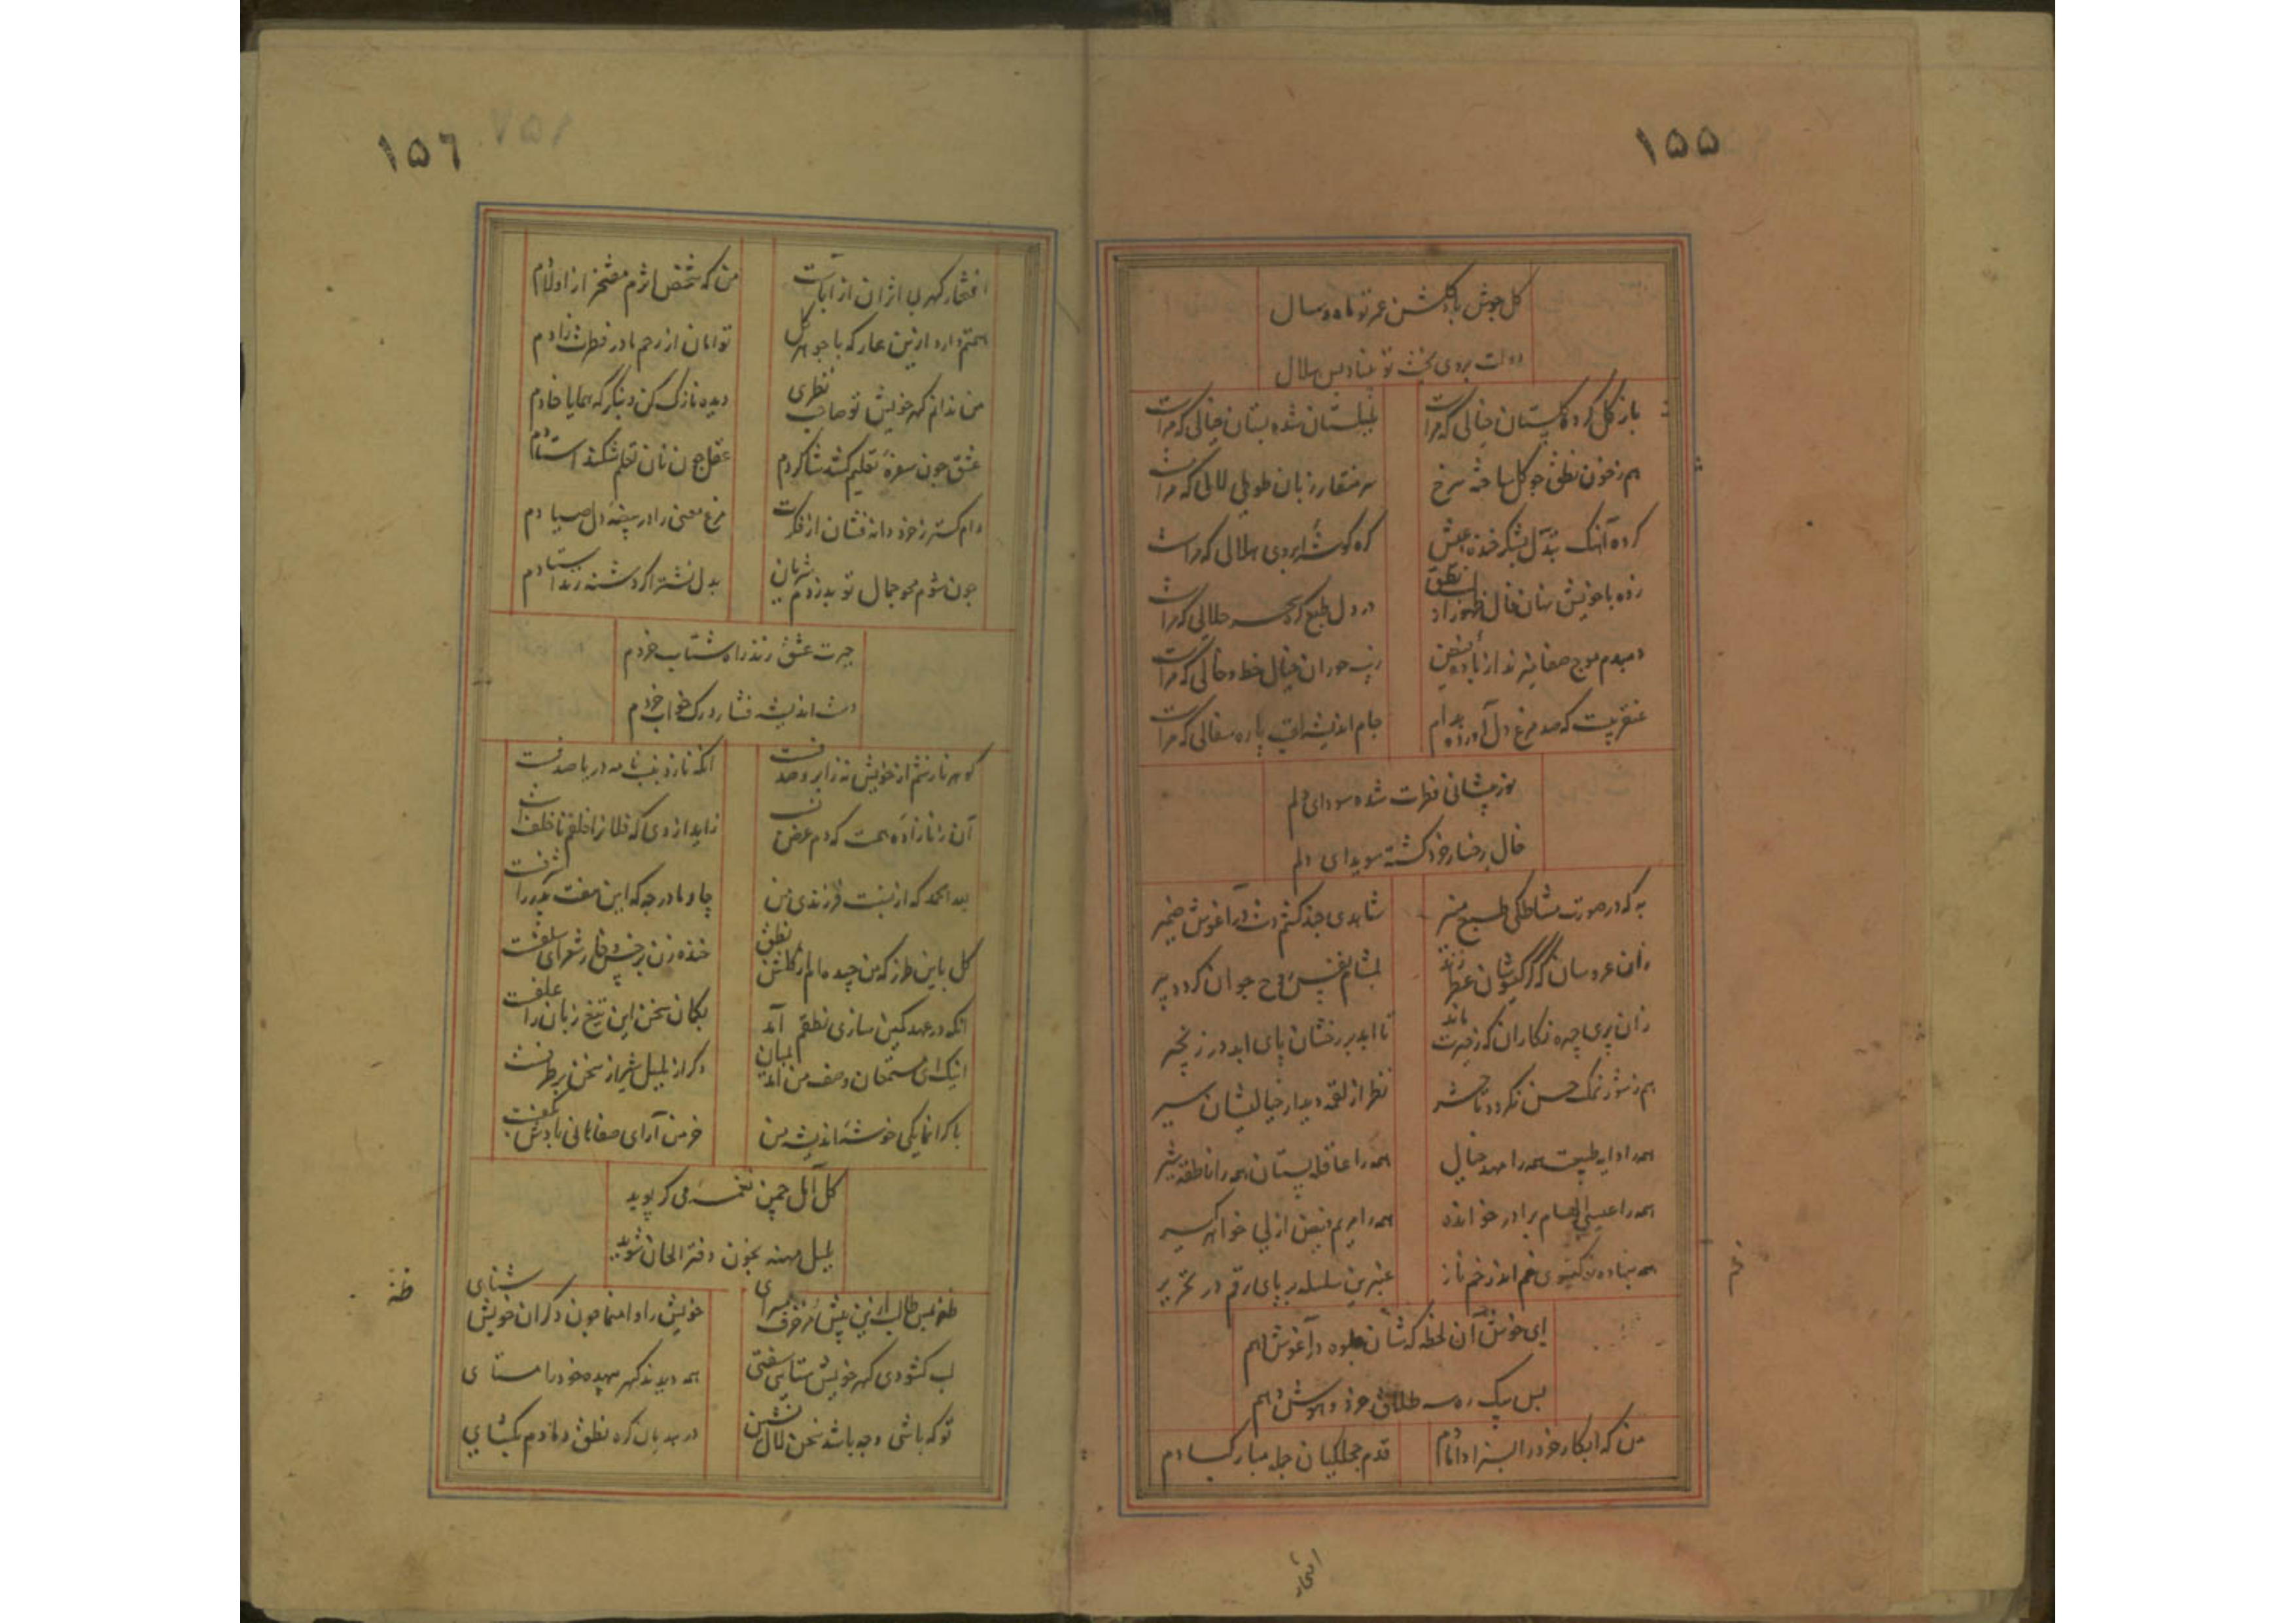 ۱۵۵
گل جوش باد گلشن عمر تو ماه و سال
دولت بروی بخت تو بیناد بس هلال
باز گل کرده گلستان خیالی که مراست
بلبلستان شده بستان خیالی که مراست
هم ز خون نطقی چو گل ساخته سرخ
سر منقار زبان طوطی لالی که مراست
کرده آهنگ تبدل بشکر خنده عیش
گره گوشه ابروی هلالی که مراست
زده با خویش نهان فال ظهور از نطق
در دل طبع گره سحر حلالی که مراست
دمبدم موج صفا میزند از باده فیض
زیب حوران خیال خط و خالی که مراست
عنقریبست که صد مرغ دل آورد بدام
جام اندیشه پاره سفالی که مراست
نور پیشانی فطرت شده سودای دلم
خال رخسار خرد گشته سویدای دلم
به که در صورت مشاطگی طبع منیر
شاهدی چند کشم در آغوش ضمیر
زان عروسان که گر گیسوشان عطر زند
بمشام نفس روح جوان گردد پیر
زان پری چهره نگاران که ز حیرت ماند
تا ابد بر رخشان پای ابد در زنجیر
هم ز شور نمک حسن نگردد تا حشر
نظر از لقمه دیدار خیالیشان سیر
همه را دایه طبیعت همه را مهد خیال
همه را عاقله پستان همه را ناطقه شیر
همه را عیسی الهام برادر خوانده
همه را مریم فیض ازلی خواهر گیر
همه بنهاده ز گیسوی خم اندر خم ناز
عنبرین سلسله بر پای رقم در تحریر
ای خوش آن لحظه که شان جلوه در آغوش دهم
پس یک ره سه طلاق خرد و هوش دهم
من که ابکار خرد را بسزا دامادم
قدم حجلگیان جمله مبارکبادم
افتخار
۱۵۶
افتخار گهر بی اثران از آباست
من که شخص اثرم مفتخر از اولادم
همتم دارد ازین عار که با جوهر کل
توامان از رحم مادر فطرت زادم
من ندانم گهر خویش تو صاحب نظری
دیده نازک کن و بنگر که همایا خادم
عشق چون سفره تعلیم کشد شاگردم
عقل چون نان تعلم شکند استادم
دام گستر ز خرد دانه فشان از فکرت
مرغ معنی را در بیضه دل صیادم
چون شوم محو جمال تو بدزدم شریان
بدل نشتر اگر دشنه زند فصادم
حیرت عشق زند راه شتاب خردم
دشت اندیشه فشارد رگ خواب خردم
گوهر نازشم از خویش نه ز ابر و صدفست
آنکه نازد بنسب نامه دریا صدفست
آن را نازاده همت که دم عرض نسب
زاید از وی که فلان را خلفم ناخلفست
لله الحمد که از نسبت فرزندی من
چار مادر چه که این هفت پدر را شرفست
گل باین طرز که من چیده‌ام از گلشن نطق
خنده زن بر خس و خار شعرای سلفست
آنکه در عهد کمین سازی نطقم آید
بگمان سخن این تیغ زبان را علفست
اینک ای مستمعان وصف من آمد بمیان
ذکر از بلبل شیراز سخن بر طرفست
با گرانمایگی خوشه اندیشه من
خرمن آرای صفاهانی بادش بکفست
گل آمال چمن نغمه من گر بوید
بلبل مهنه بخون دفتر الحان شوید
طنز بس طالب ازین بیش مزخرف مسرای
خویش را وا منما چون دگران خویش ستای
لب گشودی گهر خویش ستایی سفتی
همه دیدند گهر بیهده خود را مستای
تو که باشی و چه باشد سخن لال نشین
درهمه بان گره نطق و مادم بگشای